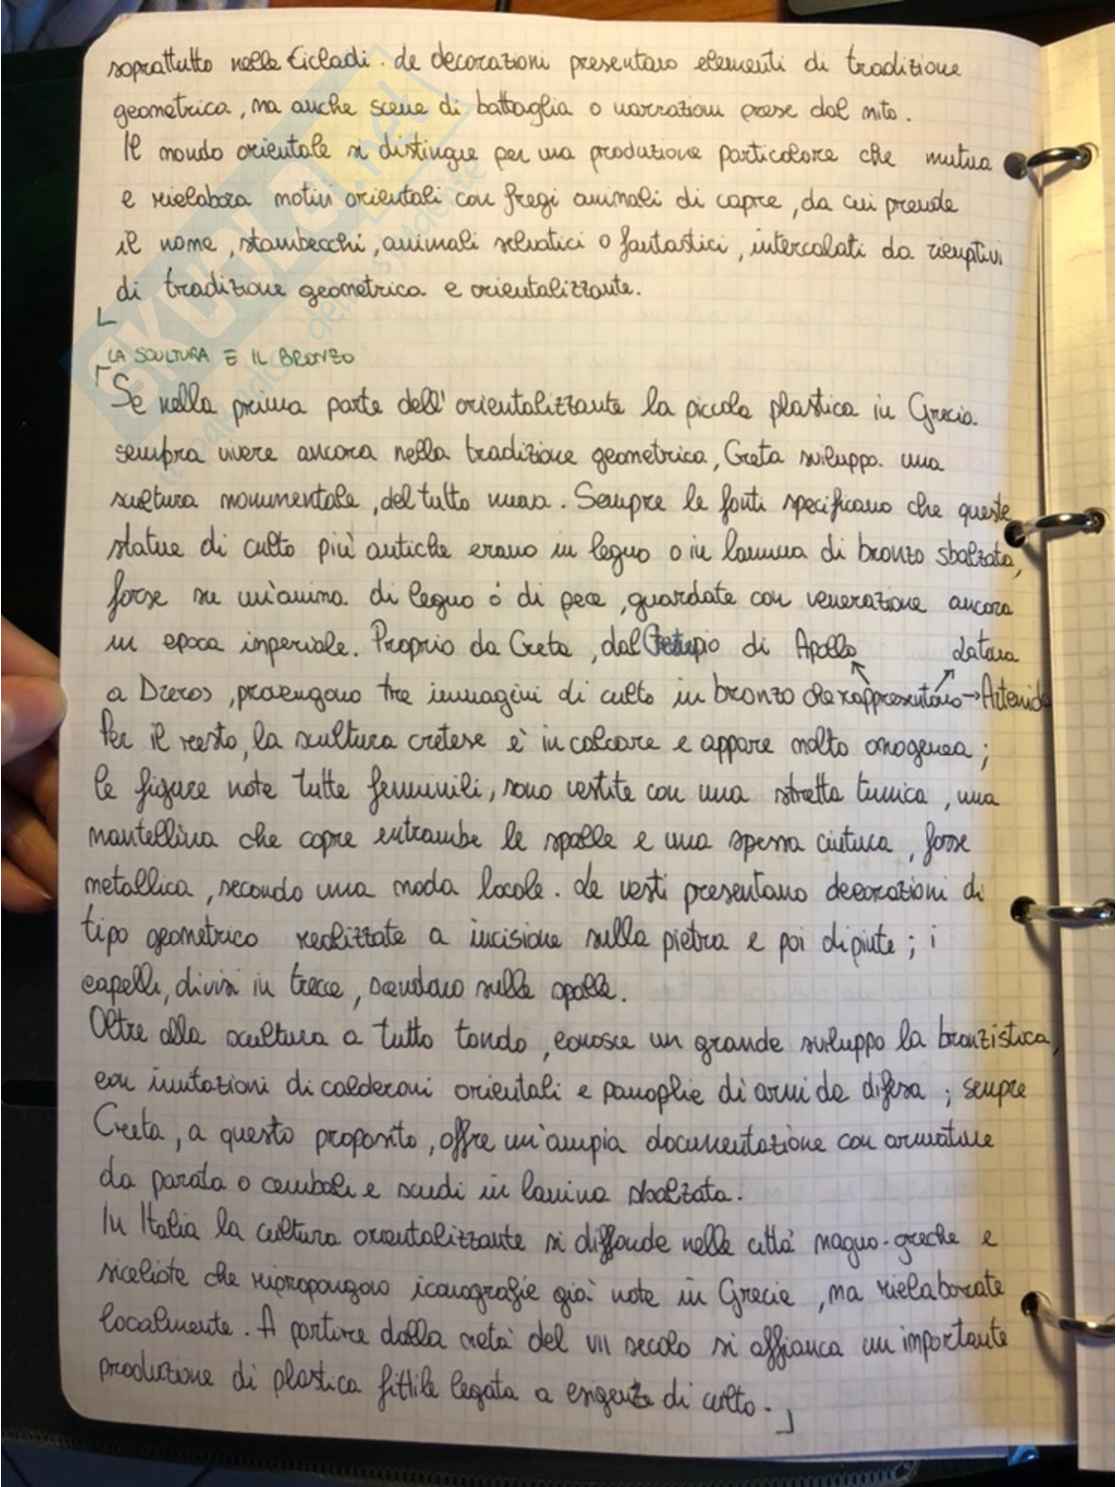 soprattutto nelle Cicladi. Le decorazioni presentano elementi di tradizione
geometrica, ma anche scene di battaglia o narrazioni prese dal mito.
Il mondo orientale si distingue per una produzione particolare che mutua
e rielabora motivi orientali con fregi animali di capre, da cui prende
il nome, stambecchi, animali selvatici o fantastici, intercalati da riempitivi
di tradizione geometrica e orientalizzante.
LA SCULTURA E IL BRONZO
Se nella prima parte dell'orientalizzante la piccola plastica in Grecia
sembra vivere ancora nella tradizione geometrica, Creta sviluppa una
scultura monumentale, del tutto nuova. Sempre le fonti specificano che queste
statue di culto più antiche erano in legno o in lamina di bronzo sbalzata,
forse su un'anima di legno o di pece, guardate con venerazione ancora
in epoca imperiale. Proprio da Creta, dal tempio di Apollo Latona
a Dreros, provengono tre immagini di culto in bronzo che rappresentano → Artemide
Per il resto, la scultura cretese è in calcare e appare molto omogenea;
le figure note tutte femminili, sono vestite con una stretta tunica, una
mantellina che copre entrambe le spalle e una spessa cintura, forse
metallica, secondo una moda locale. Le vesti presentano decorazioni di
tipo geometrico realizzate a incisione sulla pietra e poi dipinte; i
capelli, divisi in trecce, scendono sulle spalle.
Oltre alla scultura a tutto tondo, conosce un grande sviluppo la bronzistica,
con imitazioni di calderoni orientali e panoplie di armi da difesa; sempre
Creta, a questo proposito, offre un'ampia documentazione con armature
da parata o cembali e scudi in lamina sbalzata.
In Italia la cultura orientalizzante si diffonde nelle città magno-greche e
siceliote che ripropongono iconografie già note in Grecia, ma rielaborate
localmente. A partire dalla metà del VII secolo si affianca un importante
produzione di plastica fittile legata a esigenze di culto.